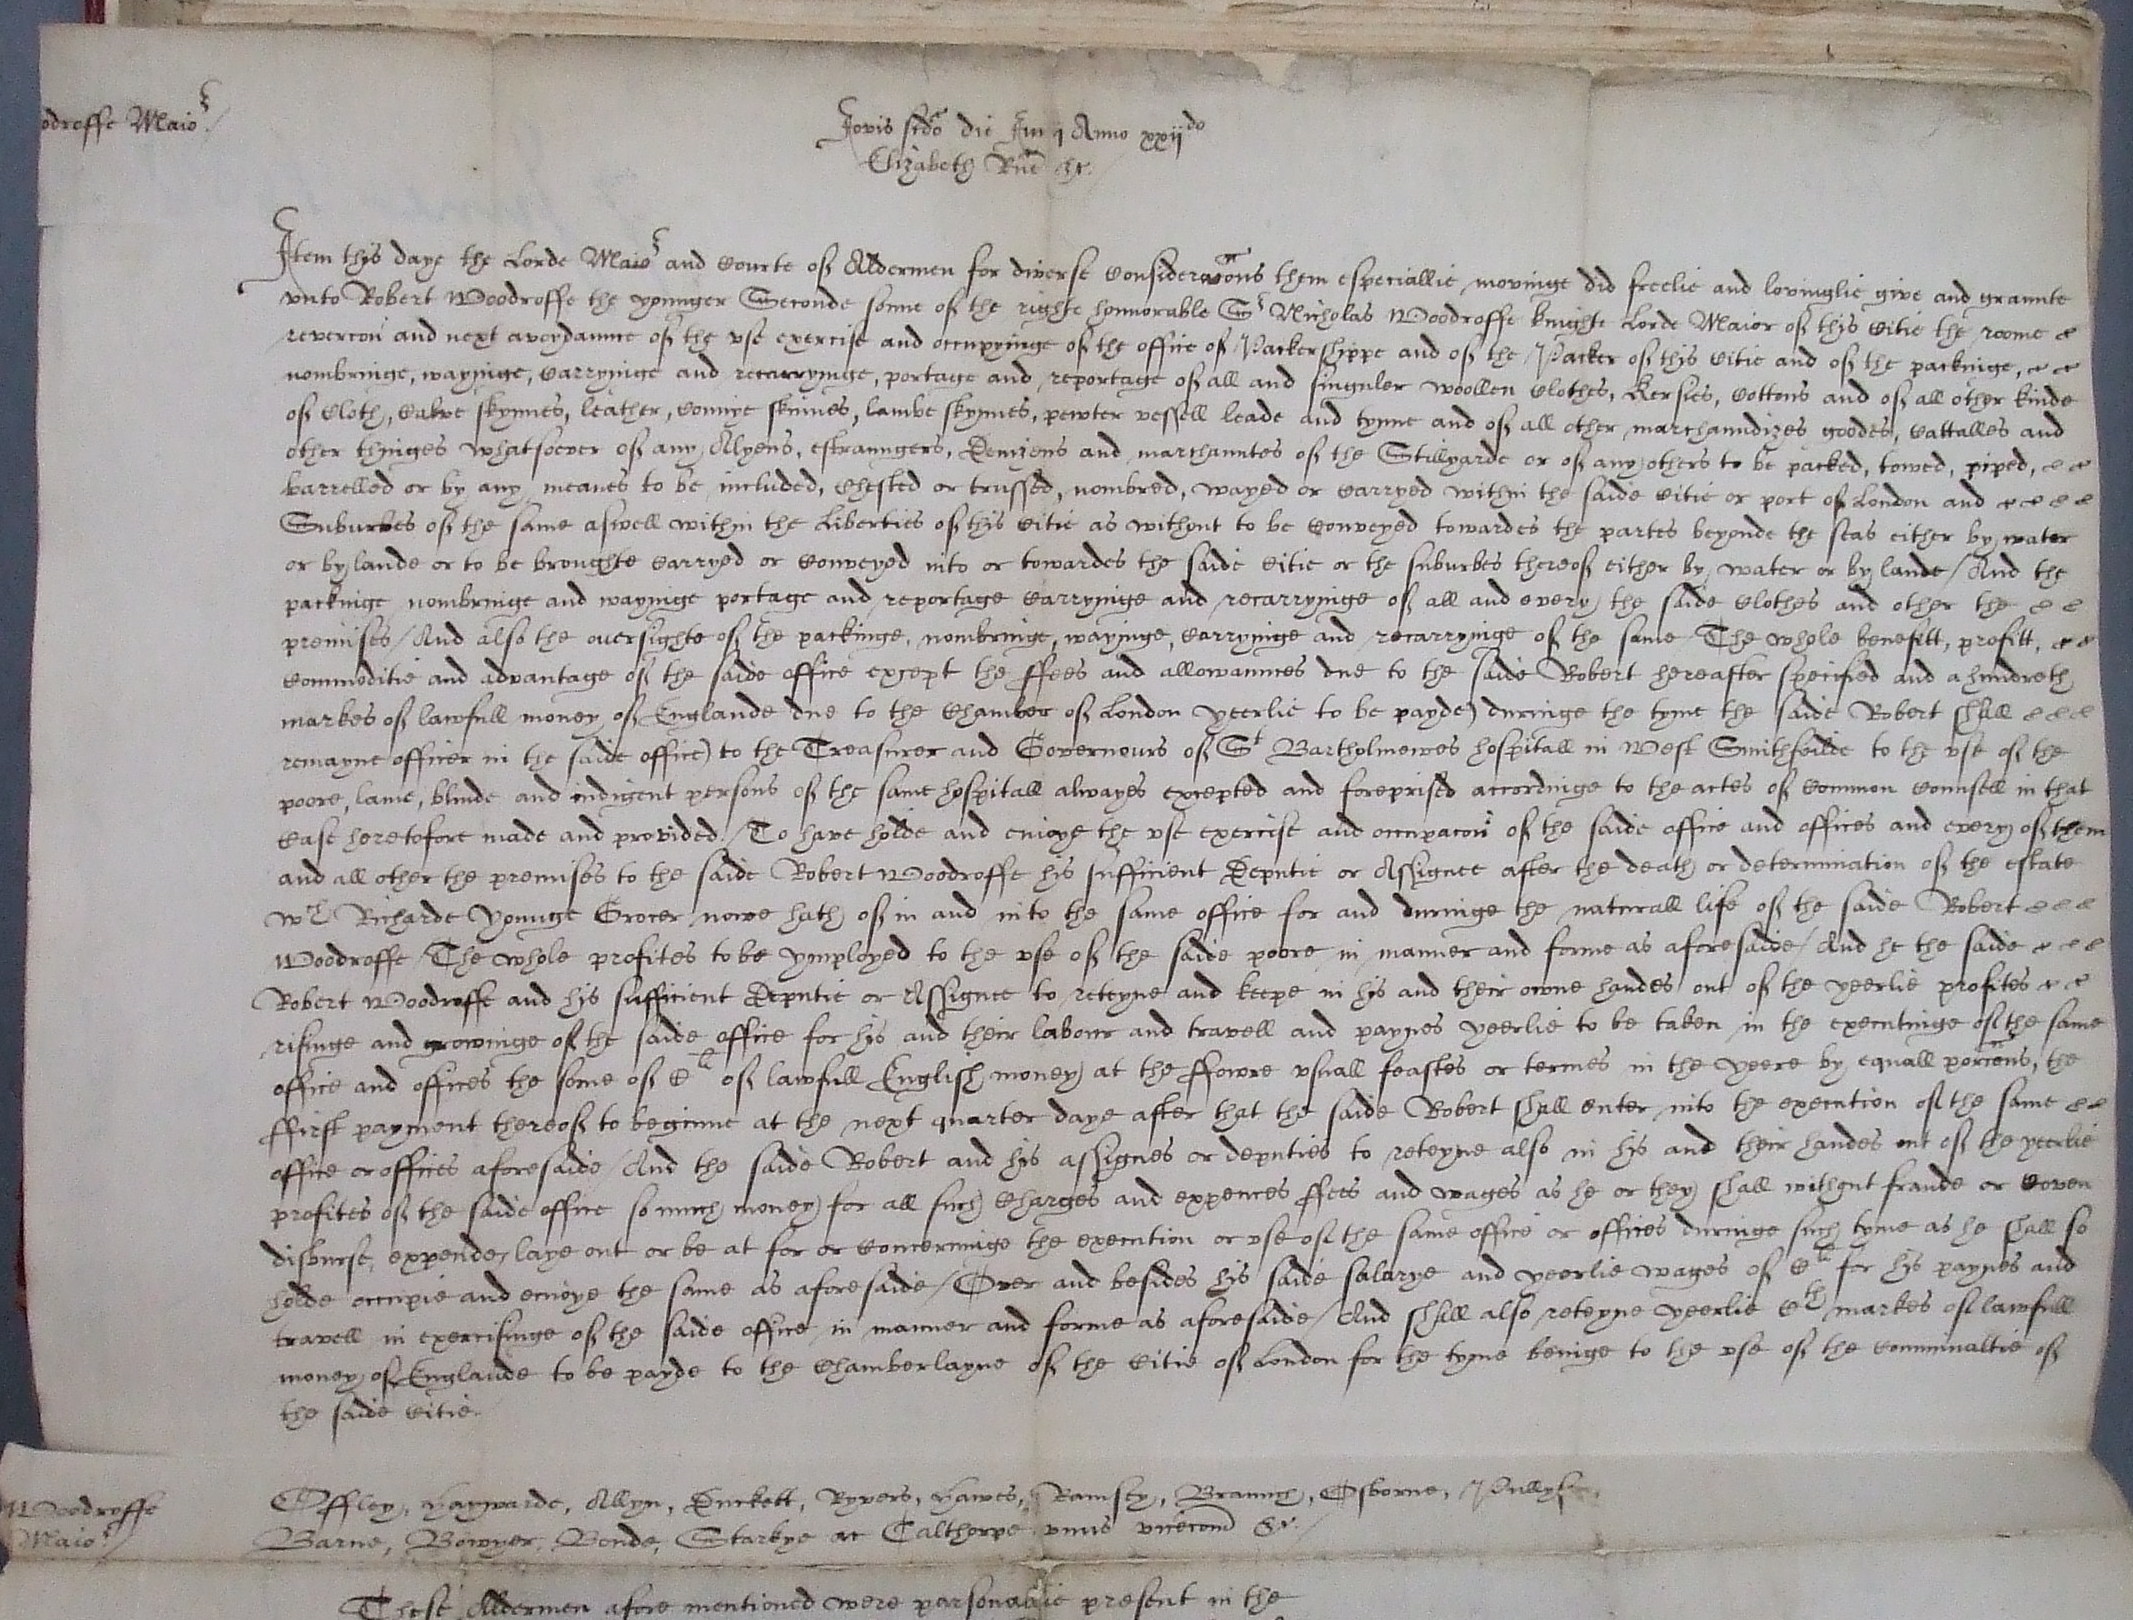 odroffe Maior
Jovis scdo die Junij Anno xxijdo
Elizabeth Rne &c.
Item this daye the Lorde Maior and Courte of Aldermen for diverse Consideracons them especiallie movinge did freelie and lovinglie give and graunte
vnto Robert Woodroffe the younger Seconde sonne of the righte honnorable Sr Nicholas Woodroffe knighte Lorde Maior of this Citie the roome &
revercon and next avoydaunce of the vse exercise and occupyinge of the office of Packershippe and of the Packer of this Citie and of the packinge, & &
nombringe, wayinge, Carryinge and recarryinge, portage and reportage of all and singuler woollen Clothes, Kersies, Cottons and of all other kinde
of Cloth, Calve skynnes, leather, Connye skinnes, lambe skynnes, pewter vessell leade and tynne and of all other marchaundizes goodes, Cattalles and
other thinges whatsoever of any Alyens, estraungers, Denizens and marchauntes of the Stillyarde or of any others to be packed, towed, piped, & &
barrelled or by any meanes to be included, Chested or trussed, nombred, wayed or Carryed within the saide Citie or port of London and & & & &
Suburbes of the same aswell within the Liberties of this Citie as without to be Conveyed towardes the partes beyonde the seas either by water
or by lande or to be broughte Carryed or Conveyed into or towardes the saide Citie or the suburbes thereof either by water or by lande / And the
packinge nombringe and wayinge portage and reportage Carryinge and recarryinge of all and every the saide Clothes and other the & &
premises / And also the oversighte of the packinge, nombringe, wayinge, Carryinge and recarryinge of the same The whole benefitt, profitt, & &
Commoditie and advantage of the saide office except the ffees and allowaunces due to the saide Robert hereafter specified and a hundreth
markes of lawfull money of Englande due to the Chamber of London yeerlie to be payde) duringe the tyme the saide Robert shall & & &
remayne officer in the saide office) to the Treasurer and Governours of St Bartholmewes hospitall in West Smithfeilde to the vse of the
poore, lame, blinde and indigent persons of the same hospitall alwayes excepted and foreprised accordinge to the actes of Common Counsell in that
Case heretofore made and provided / To have holde and enioye the vse exercise and occupacon of the saide office and offices and every of them
and all other the premises to the saide Robert Woodroffe his sufficient Deputie or Assignee after the death or determination of the estate
wch Richarde Younge Grocer nowe hath of in and into the same office for and duringe the naturall life of the saide Robert & & &
Woodroffe / The whole profites to be ymployed to the vse of the saide poore in manner and forme as aforesaide / And he the saide & & &
Robert Woodroffe and his sufficient Deputie or Assignee to reteyne and keepe in his and their owne handes out of the yeerlie profites & &
risinge and growinge of the saide office for his and their labour and travell and paynes yeerlie to be taken in the executinge of the same
office and offices the some of Cli of lawfull English money at the ffowre vsuall feastes or termes in the yeere by equall porcions, the
ffirst payment thereof to beginne at the next quarter daye after that the saide Robert shall enter into the execution of the same & &
office or offices aforesaide / And the saide Robert and his assignes or deputies to reteyne also in his and their handes out of the yeerlie
profites of the saide office so much money for all such Charges and expences ffees and wages as he or they shall without fraude or Coven
disburse, expende, laye out or be at for or Concerninge the execution or vse of the same office or offices duringe such tyme as he shall so
holde occupie and enioye the same as aforesaide / Over and besides his saide salarye and yeerlie wages of Cli for his paynes and
travell in exercisinge of the saide office in manner and forme as aforesaide / And shall also reteyne yeerlie Cth markes of lawfull
money of Englande to be payde to the Chamberlayne of the Citie of London for the tyme beinge to the vse of the Comminaltie of
the saide Citie.
Woodroffe
Maior
Offley, Haywarde, Allyn, Duckett, Ryvers, Hawes, Ramsey, Braunch, Osborne,
Barne, Bowyer, Bonde, Starkye ac Calthorpe vnus vicecom &c.
These Aldermen afore mentioned were parsonablie present in the